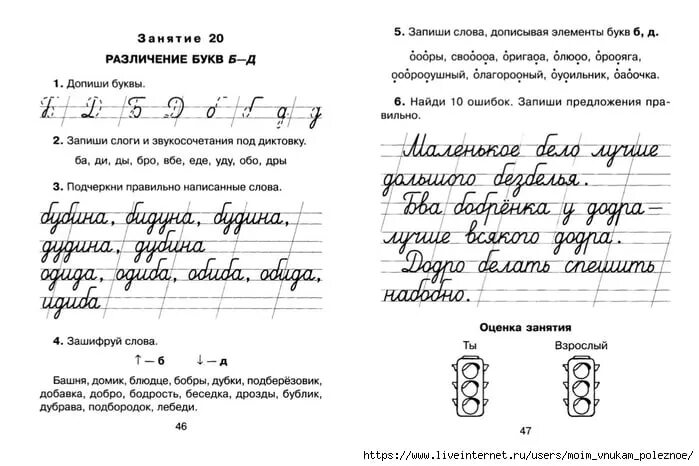 Занятие 20
РАЗЛИЧЕНИЕ БУКВ Б—Д
1. Допиши буквы.
Б Д Б Д б б д д
2. Запиши слоги и звукосочетания под диктовку.
ба, ди, ды, бро, вбе, еде, уду, обо, дры
3. Подчеркни правильно написанные слова.
бубина, бидуна, будина,
дудина, дубина
одида, одиба, обиба, обида,
идиба
4. Зашифруй слова.
↑ — б ↓ — д
Башня, домик, блюдце, бобры, дубки, подберёзовик,
добавка, добро, бодрость, беседка, дрозды, бублик,
дубрава, подбородок, лебеди.
46
5. Запиши слова, дописывая элементы букв б, д.
оооры, свооооа, оригаоа, олюоо, ороояга,
ооорооушный, олагорооный, оуоильник, оаоочка.
6. Найди 10 ошибок. Запиши предложения пра-
вильно.
Маленькое бело лучше
дольшого безбелья.
Бва бобрёнка у додра—
лучше всякого додра.
Додро белать спешить
набобно.
Оценка занятия
Ты Взрослый
47
https://www.liveinternet.ru/users/moim_vnukam_poleznoe/